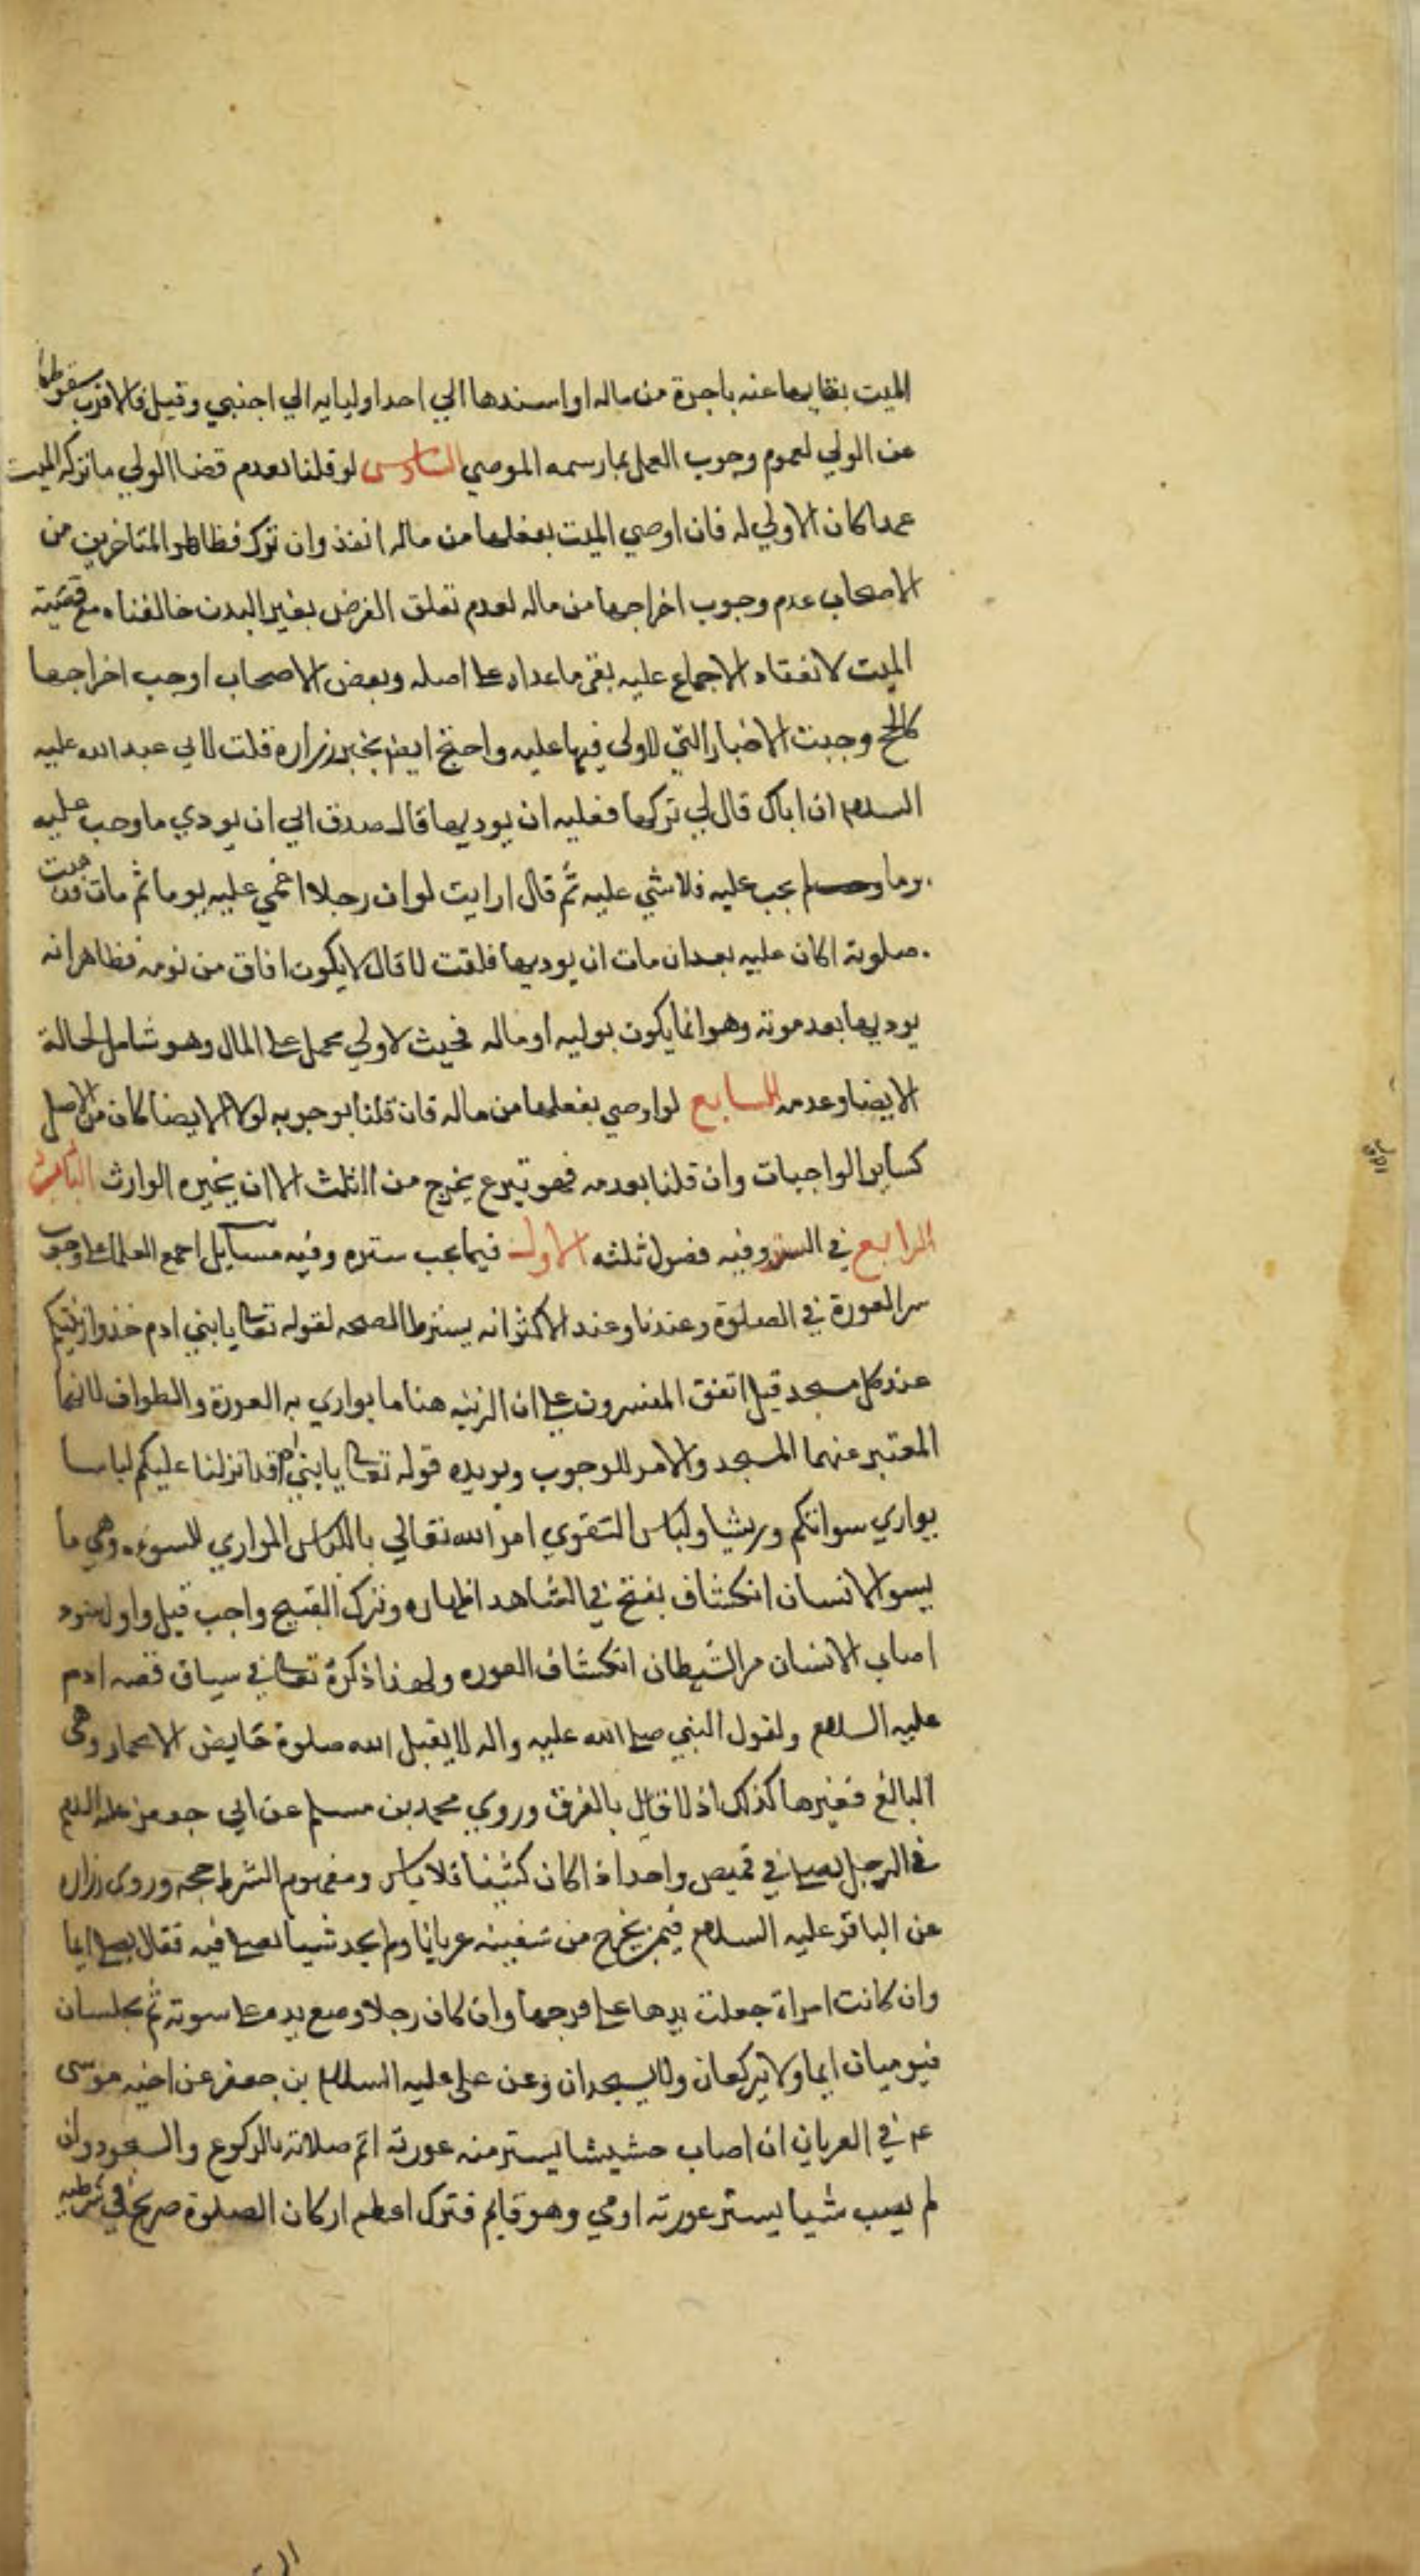 الميت بقضايها عنه باجرة من ماله او اسندها الي احد اوليايه الي اجنبي وقيل فالاقرب سقوطها
عن الولي لعموم وجوب العمل بما رسمه الموصي السادس لو قلنا بعدم قضا الولي ما تركه الميت
عمدا كان الاولي له فان اوصي الميت بفعلها من ماله انفذ وان ترك فظاهر المتاخرين من
الاصحاب عدم وجوب اخراجها من ماله لعدم تعلق الفرض بغير البدن خالفناه مع
الميت لانعقاد الاجماع عليه بقي ما عداه علي اصله وبعض الاصحاب اوجب اخراجها
كالحج وجبت الاخبار التي لا ولي فيها عليه واحتج ايضا بخبر زرارة قلت لابي عبد الله عليه
السلام ان اباك قال لي تركها فعليه ان يوديها قال صدق ابي ان يودي ما وجب عليه
وما لم يجب عليه فلا شي عليه ثم قال ارايت لو ان رجلا اغمي عليه يوما ثم مات فذهبت
صلوته اكان عليه بعد ان مات ان يوديها فلقت لا قال لا يكون افاق من نومه فظاهر انه
يوديها بعد موته وهو انما يكون بوليه او ماله فحيث لا ولي يحمل علي المال وهو شامل لحالة
الايضا وعدمه السابع لو اوصي بفعلها من ماله فان قلنا بوجوبه لولا الايضا كان من الاصل
كساير الواجبات وان قلنا بعدمه فهو تبرع يخرج من الثلث الا ان يجيره الوارث الباب
الرابع في الستر وفيه فصول ثلثه الاول فيما يجب ستره وفيه مسايل اجمع العلما علي وجوب
ستر العورة في الصلوة وعندنا وعند الاكثر انه يشترط الصحه لقوله تعالي يا بني ادم خذوا زينتكم
عند كل مسجد قيل اتفق المفسرون علي ان الزينه هنا ما يواري به العورة والطواف لانهما
المعتبر عنهما المسجد والامر للوجوب ويويده قوله تعالي يا بني ادم قد انزلنا عليكم لباسا
يواري سواتكم وريشا ولباس التقوي امر الله تعالي باللباس المواري للسوءه وهي ما
يسو الانسان انكشاف بفتح في الشاهد اظهاره وترك القبيح واجب قيل واول سوء
اصاب الانسان من الشيطان انكشاف العوره ولهذا ذكره تعالي في سياق قصه ادم
عليه السلام ولقول النبي صلي الله عليه واله لا يقبل الله صلوة حايض الا بخمار وهي
البالغ فغيرها كذلك اذ لا قال بالفرق وروي محمد بن مسلم عن ابي جعفر عليه السلم
في الرجل يصلي في قميص واحد اذا كان كثيفا فلا باس ومفهوم الشرط حجه وروي زراره
عن الباقر عليه السلام فيمن يخرج من سفينه عريانا ولم يجد شيا يصلي فيه فقال يصلي ايما
وان كانت امراة جعلت يدها علي فرجها وان كان رجلا وضع يده علي سوته ثم يجلسان
فيوميان ايما ولا يركعان ولا يسجدان وعن علي عليه السلام بن جعفر عن اخيه موسي
عم في العريان ان اصاب حشيشا يستر منه عورته اتم صلاته بالركوع والسجود وان
لم يصب شيا يستر عورته اومي وهو قايم فترك اعظم اركان الصلوة صريح في شرطيه